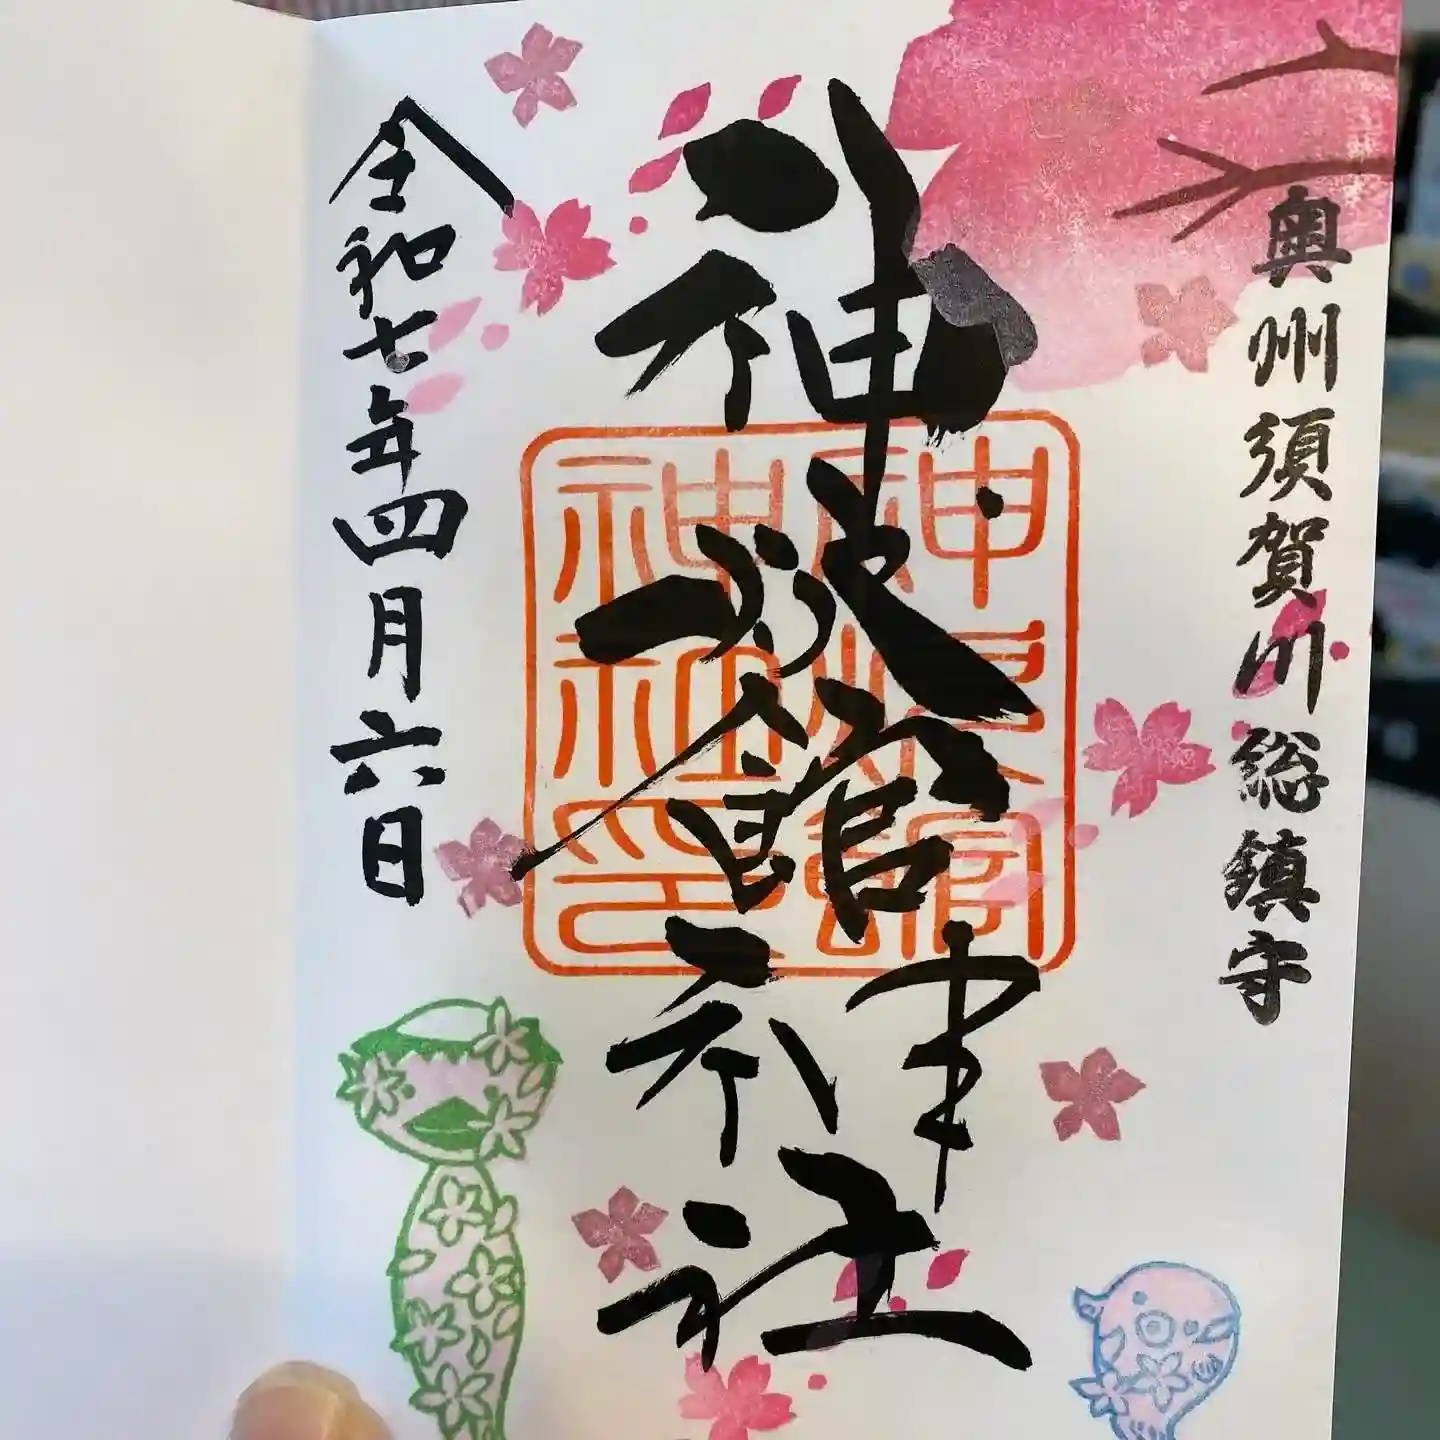 奥州須賀川総鎮守
神炊館神社
神炊館
神社印
令和七年四月六日